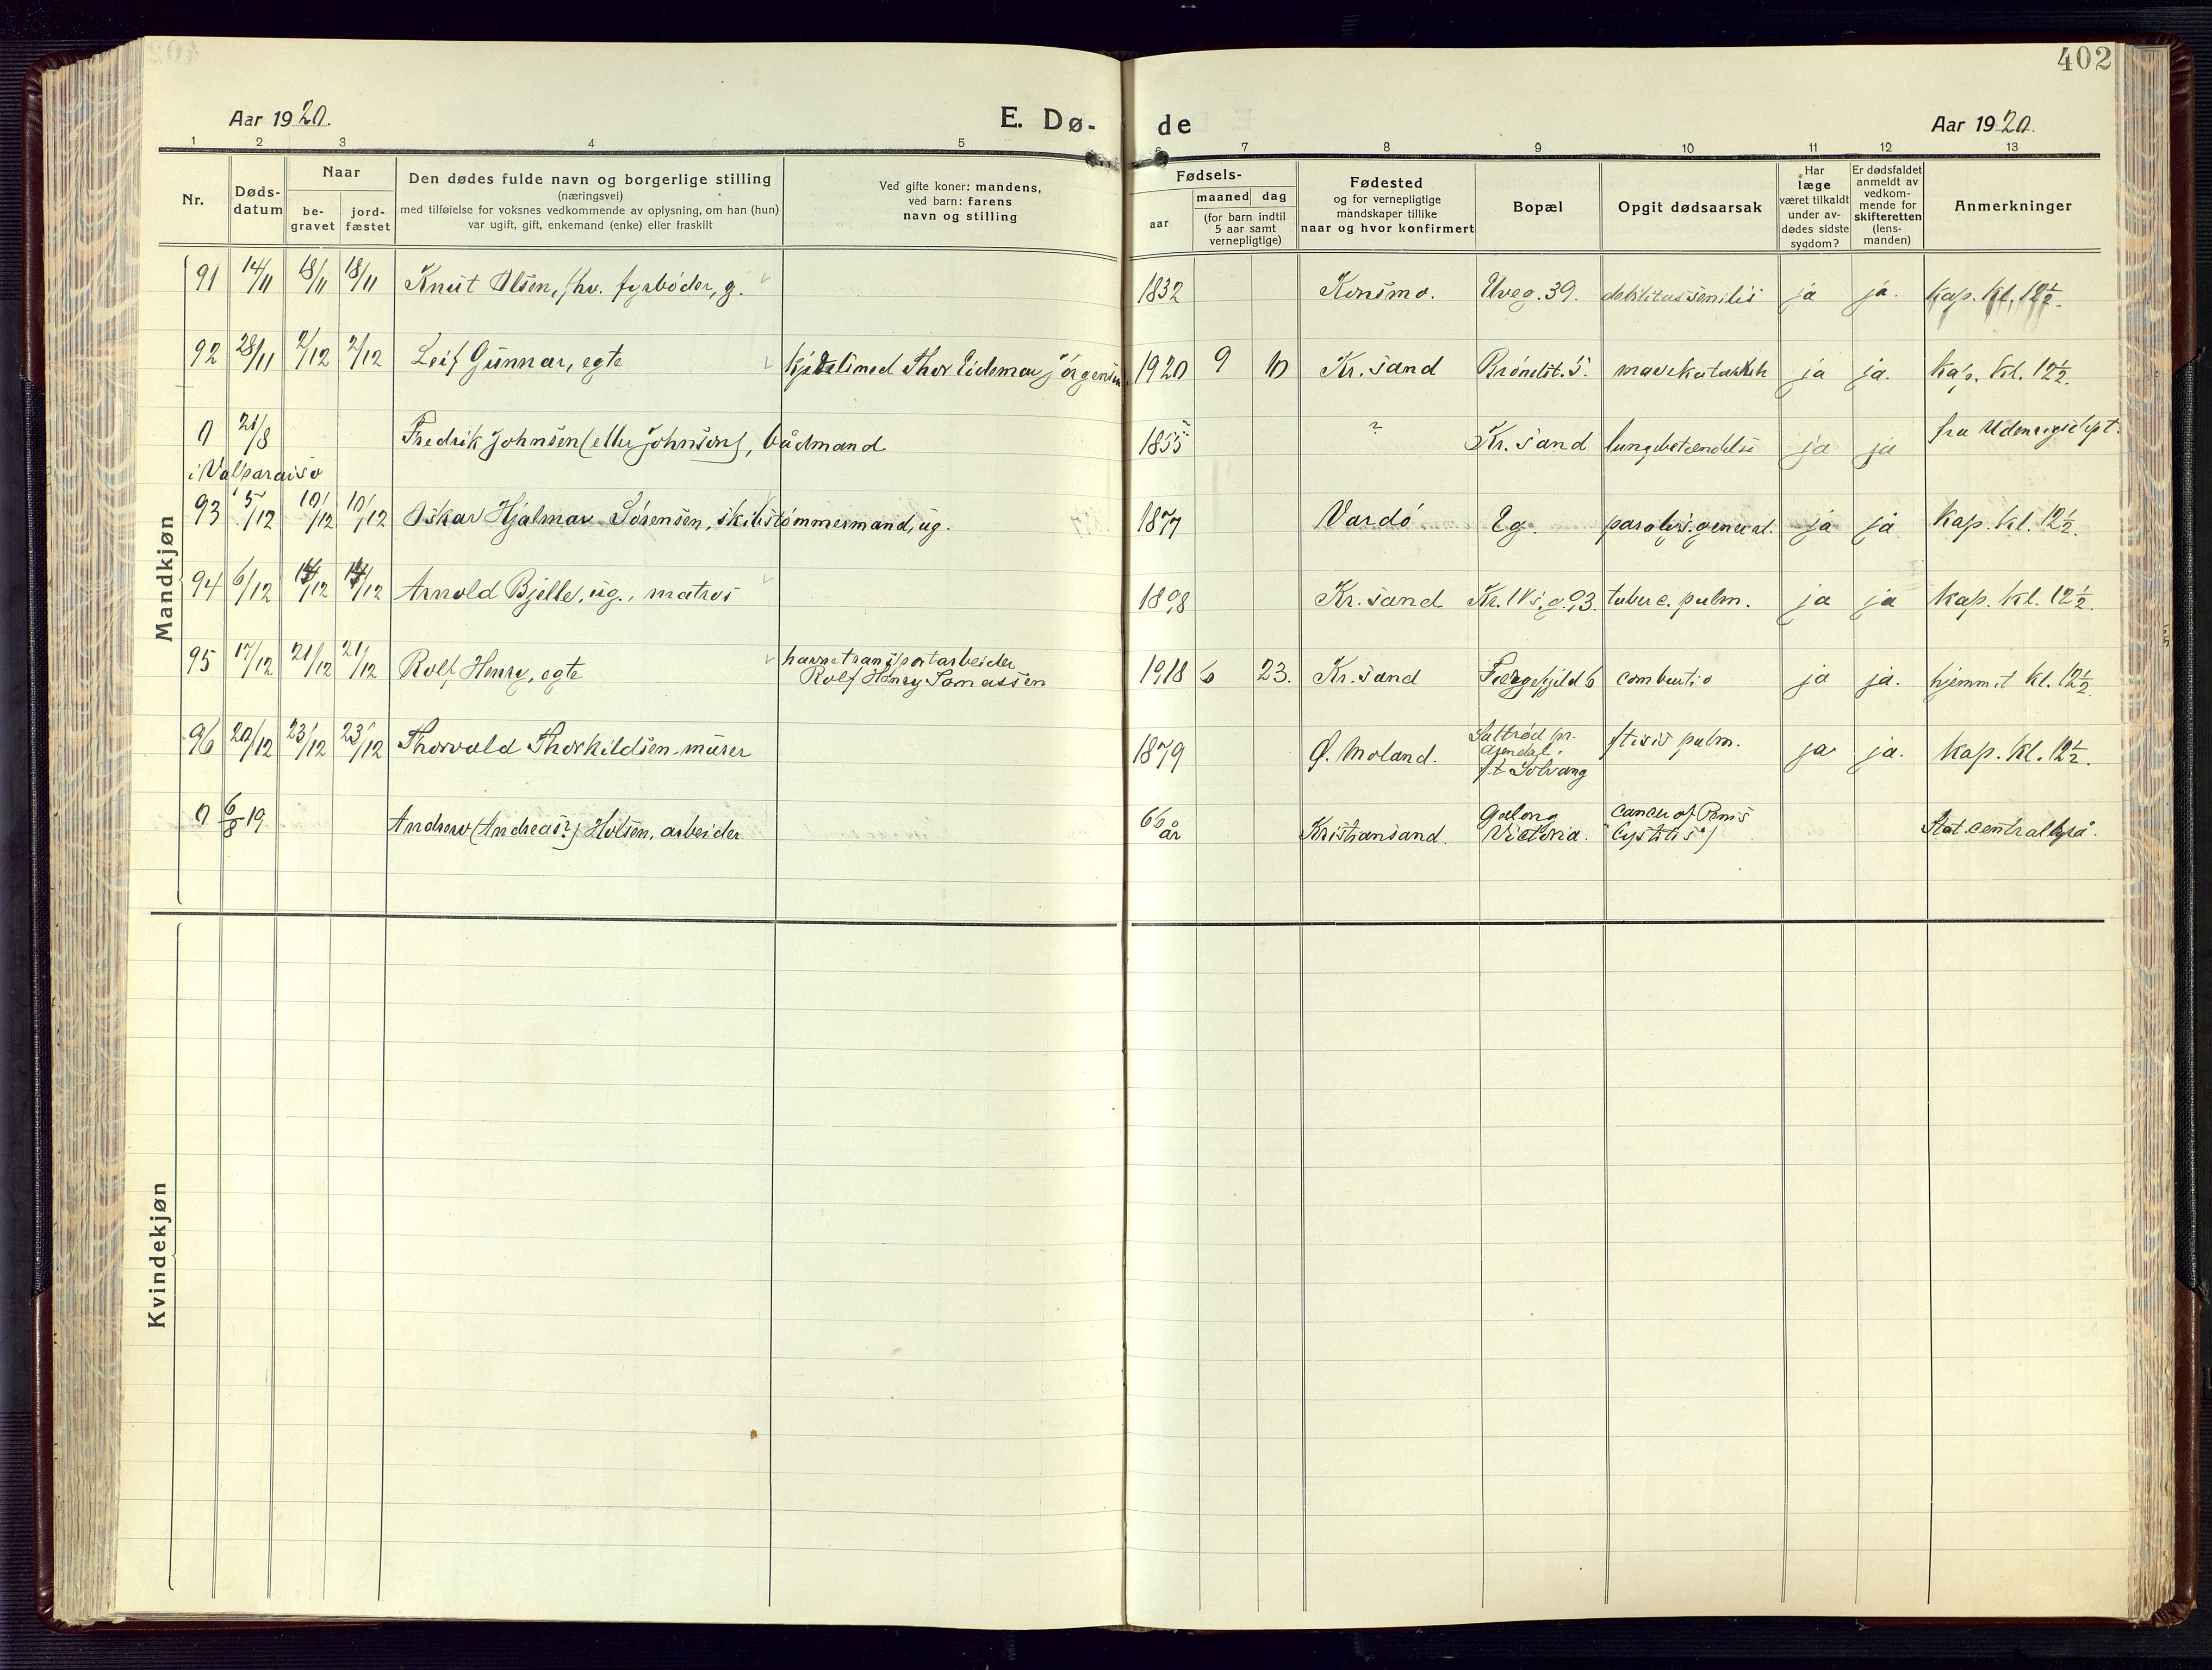 402
Aar 1920.
E. Dø-
de
Aar 1920.
1 2 3 4 5 6 7 8 9 10 11 12 13
Nr.
Døds-
datum
Naar
be-
gravet
jord-
fæstet
Den dødes fulde navn og borgerlige stilling
(næringsvei)
med tilføielse for voksnes vedkommende av oplysning, om han (hun)
var ugift, gift, enkemand (enke) eller fraskilt
Ved gifte koner: mandens,
ved barn: farens
navn og stilling
Fødsels-
aar
maaned dag
(for barn indtil
5 aar samt
vernepligtige)
Fødested
og for vernepligtige
mandskaper tillike
naar og hvor konfirmert
Bopæl
Opgit dødsaarsak
Har
læge
været tilkaldt
under av-
dødes sidste
sygdom?
Er dødsfaldet
anmeldt av
vedkom-
mende for
skifteretten
(lens-
manden)
Anmerkninger
Mandkjøn
91 14/11 18/11 18/11 Knut Olsen, fhv. fyrbøder, g. 1832 Konsmo. Elveg. 39. debilitas senilis ja ja. kap. kl. 12½.
92 28/11 2/12 2/12 Leif Gunnar, egte kjedelsmed Thor Eidemar Jörgensen 1920 9 10 Kr.sand Bröndst. 5. mavekatarrh ja ja. kap. kl. 12½.
0 21/8 Fredrik Johnsen (eller Johnson), bådmand 1855 ? Kr.sand lungebetændelse ja ja fra Udenrigsdept.
i Valparaiso
93 5/12 10/12 10/12 Oskar Hjalmar Sörensen, skibstömmermand, ug. 1877 Vardö Eg. paralys. general. ja ja Kap. kl. 12½.
94 6/12 /12 /12 Arnold Bjelle, ug., matros 1898 Kr.sand Kr. IVs g. 93. tuberc. pulm. ja ja kap. kl. 12½.
95 17/12 21/12 21/12 Rolf Henry, egte havnetransportarbeider
Rolf Henry Tomassen 1918 6 23. Kr.sand Fergefjeld 6 combustio ja ja. hjemmet kl. 12½.
96 20/12 23/12 23/12 Thorvald Thorkildsen, murer 1879 Ø. Moland. Saltrød pr.
Arendal.
p.t. Solvang ftisis pulm. ja ja. kap. kl. 12½.
0 6/8 19 Andrew (Andreas?) Holsen, arbeider 66 år Kristiansand. Geelong
Victoria. cancer of Penis
(cystitis) Stat. centralbyrå.
Kvindekjøn